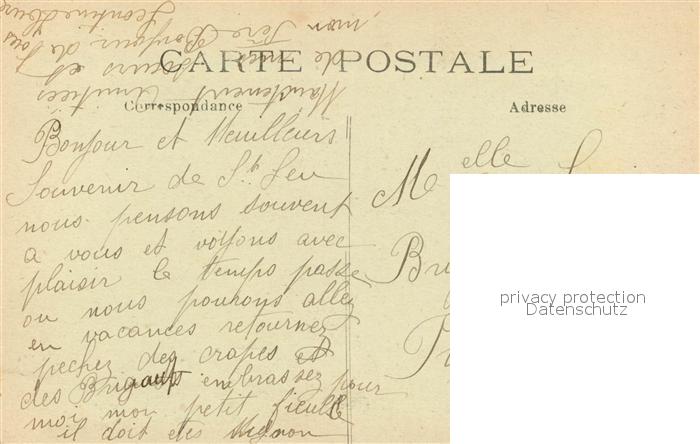 CARTE POSTALE
Correspondance
Adresse
Bonjour et Meuilleurs
Souvenir de St. Leu
nous pensons souvent
a vous et voyons avec
plaisir le temps passe
ou nous pourons allez
en vacances retournez
pechez des crapes et
des Brigauts embrassez pour
moi mon petit fieulle
il doit etes Mignon
Maintenent
de
et
mon Père Bonjour de
Leontine
Melle
privacy protection
Datenschutz